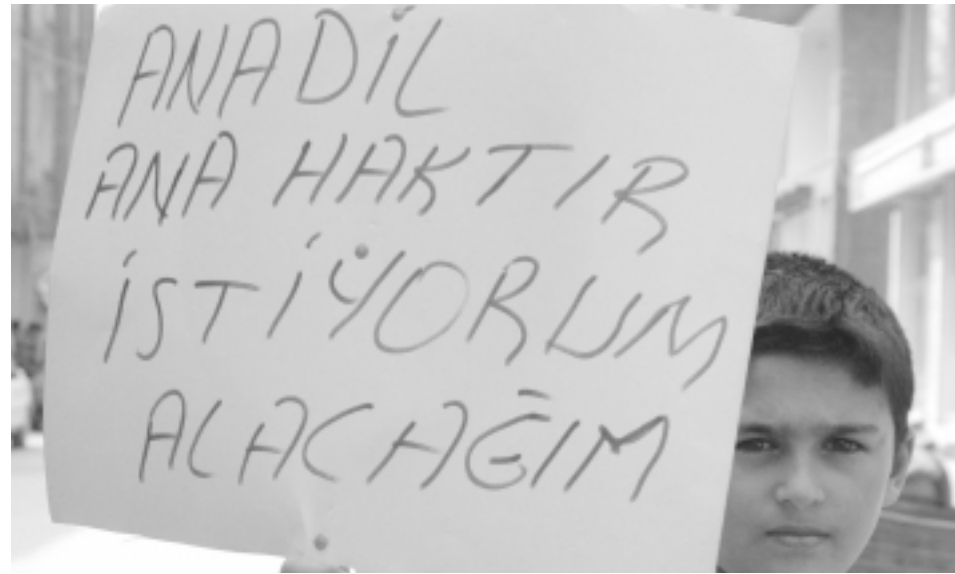 ANADİL
ANA HAKTIR
İSTİYORUM
ALACAĞIM